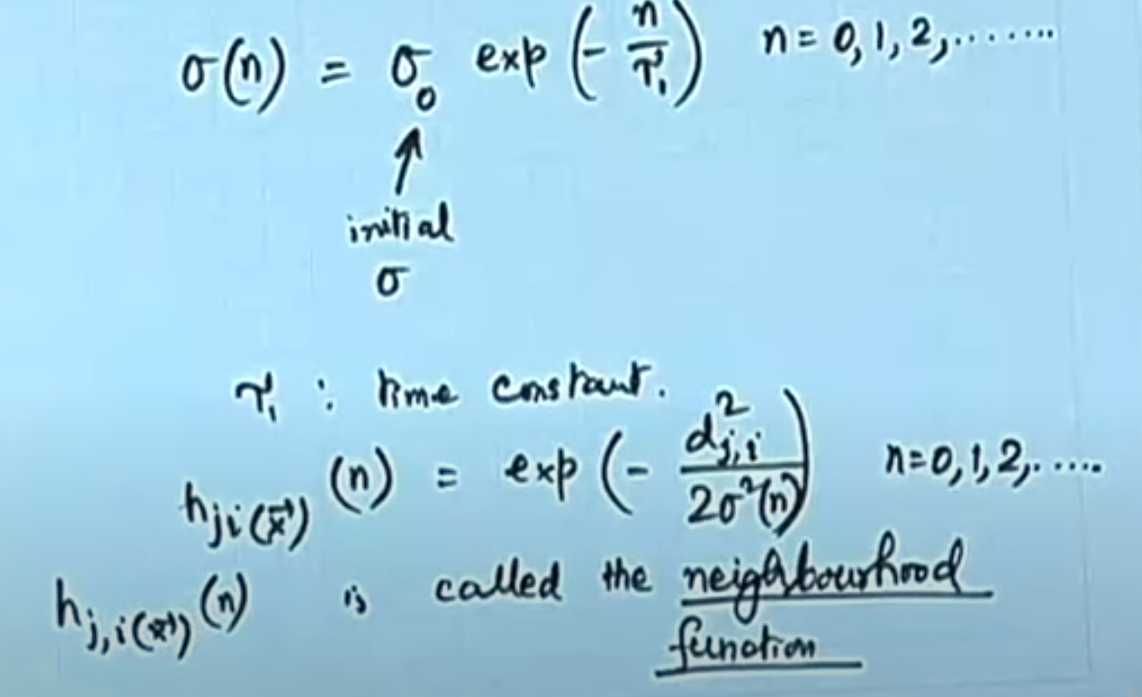 σ(n) = σ₀ exp (- n/τ₁) n = 0, 1, 2, .......
↑
initial
σ
τ₁ : time constant.
h_{ji(x⃗)} (n) = exp (- d²_{j,i} / 2σ²(n)) n = 0, 1, 2, .....
h_{j,i(x⃗)} (n) is called the neighbourhood
function